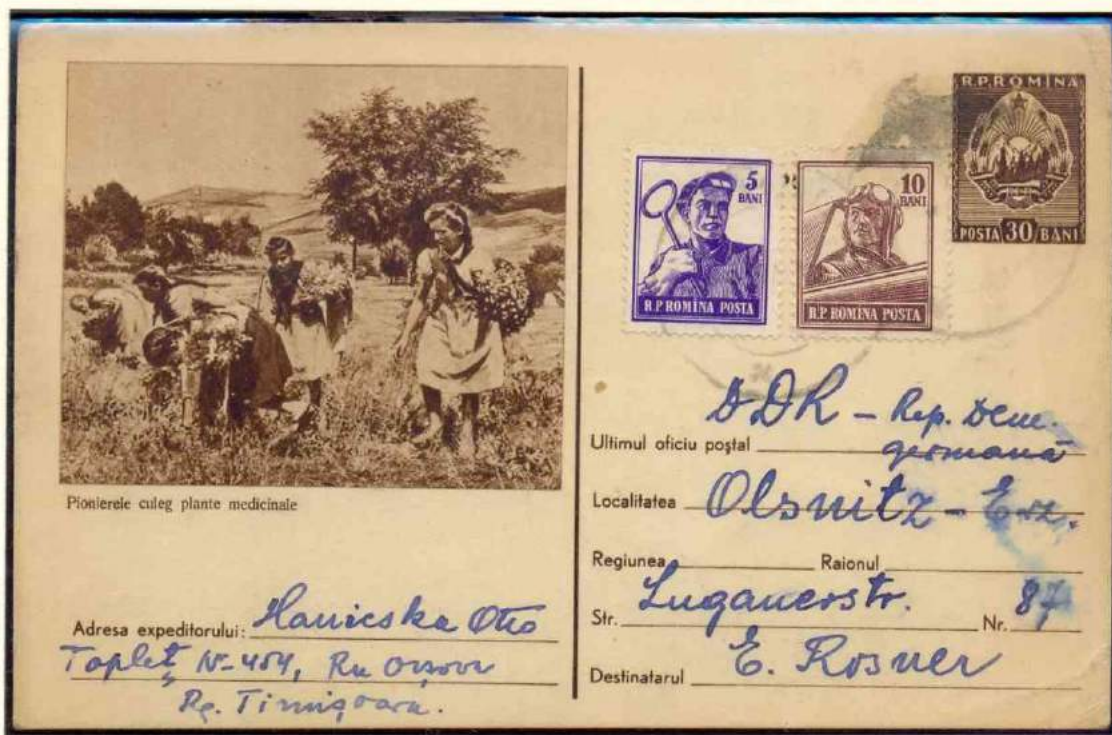 Pionierele culeg plante medicinale
Adresa expeditorului: Hanicska Otto
Topleţ N-454, Rn Orşova
Rg. Timişoara.
5
BANI
R.P.ROMINA POSTA
10
BANI
R.P.ROMINA POSTA
R.P.ROMINA
POSTA 30 BANI
DDR - Rep. Dem.
Ultimul oficiu poştal germană
Localitatea Olsnitz - Erz.
Regiunea Raionul
Str. Luganerstr. Nr. 87
Destinatarul E. Rosner